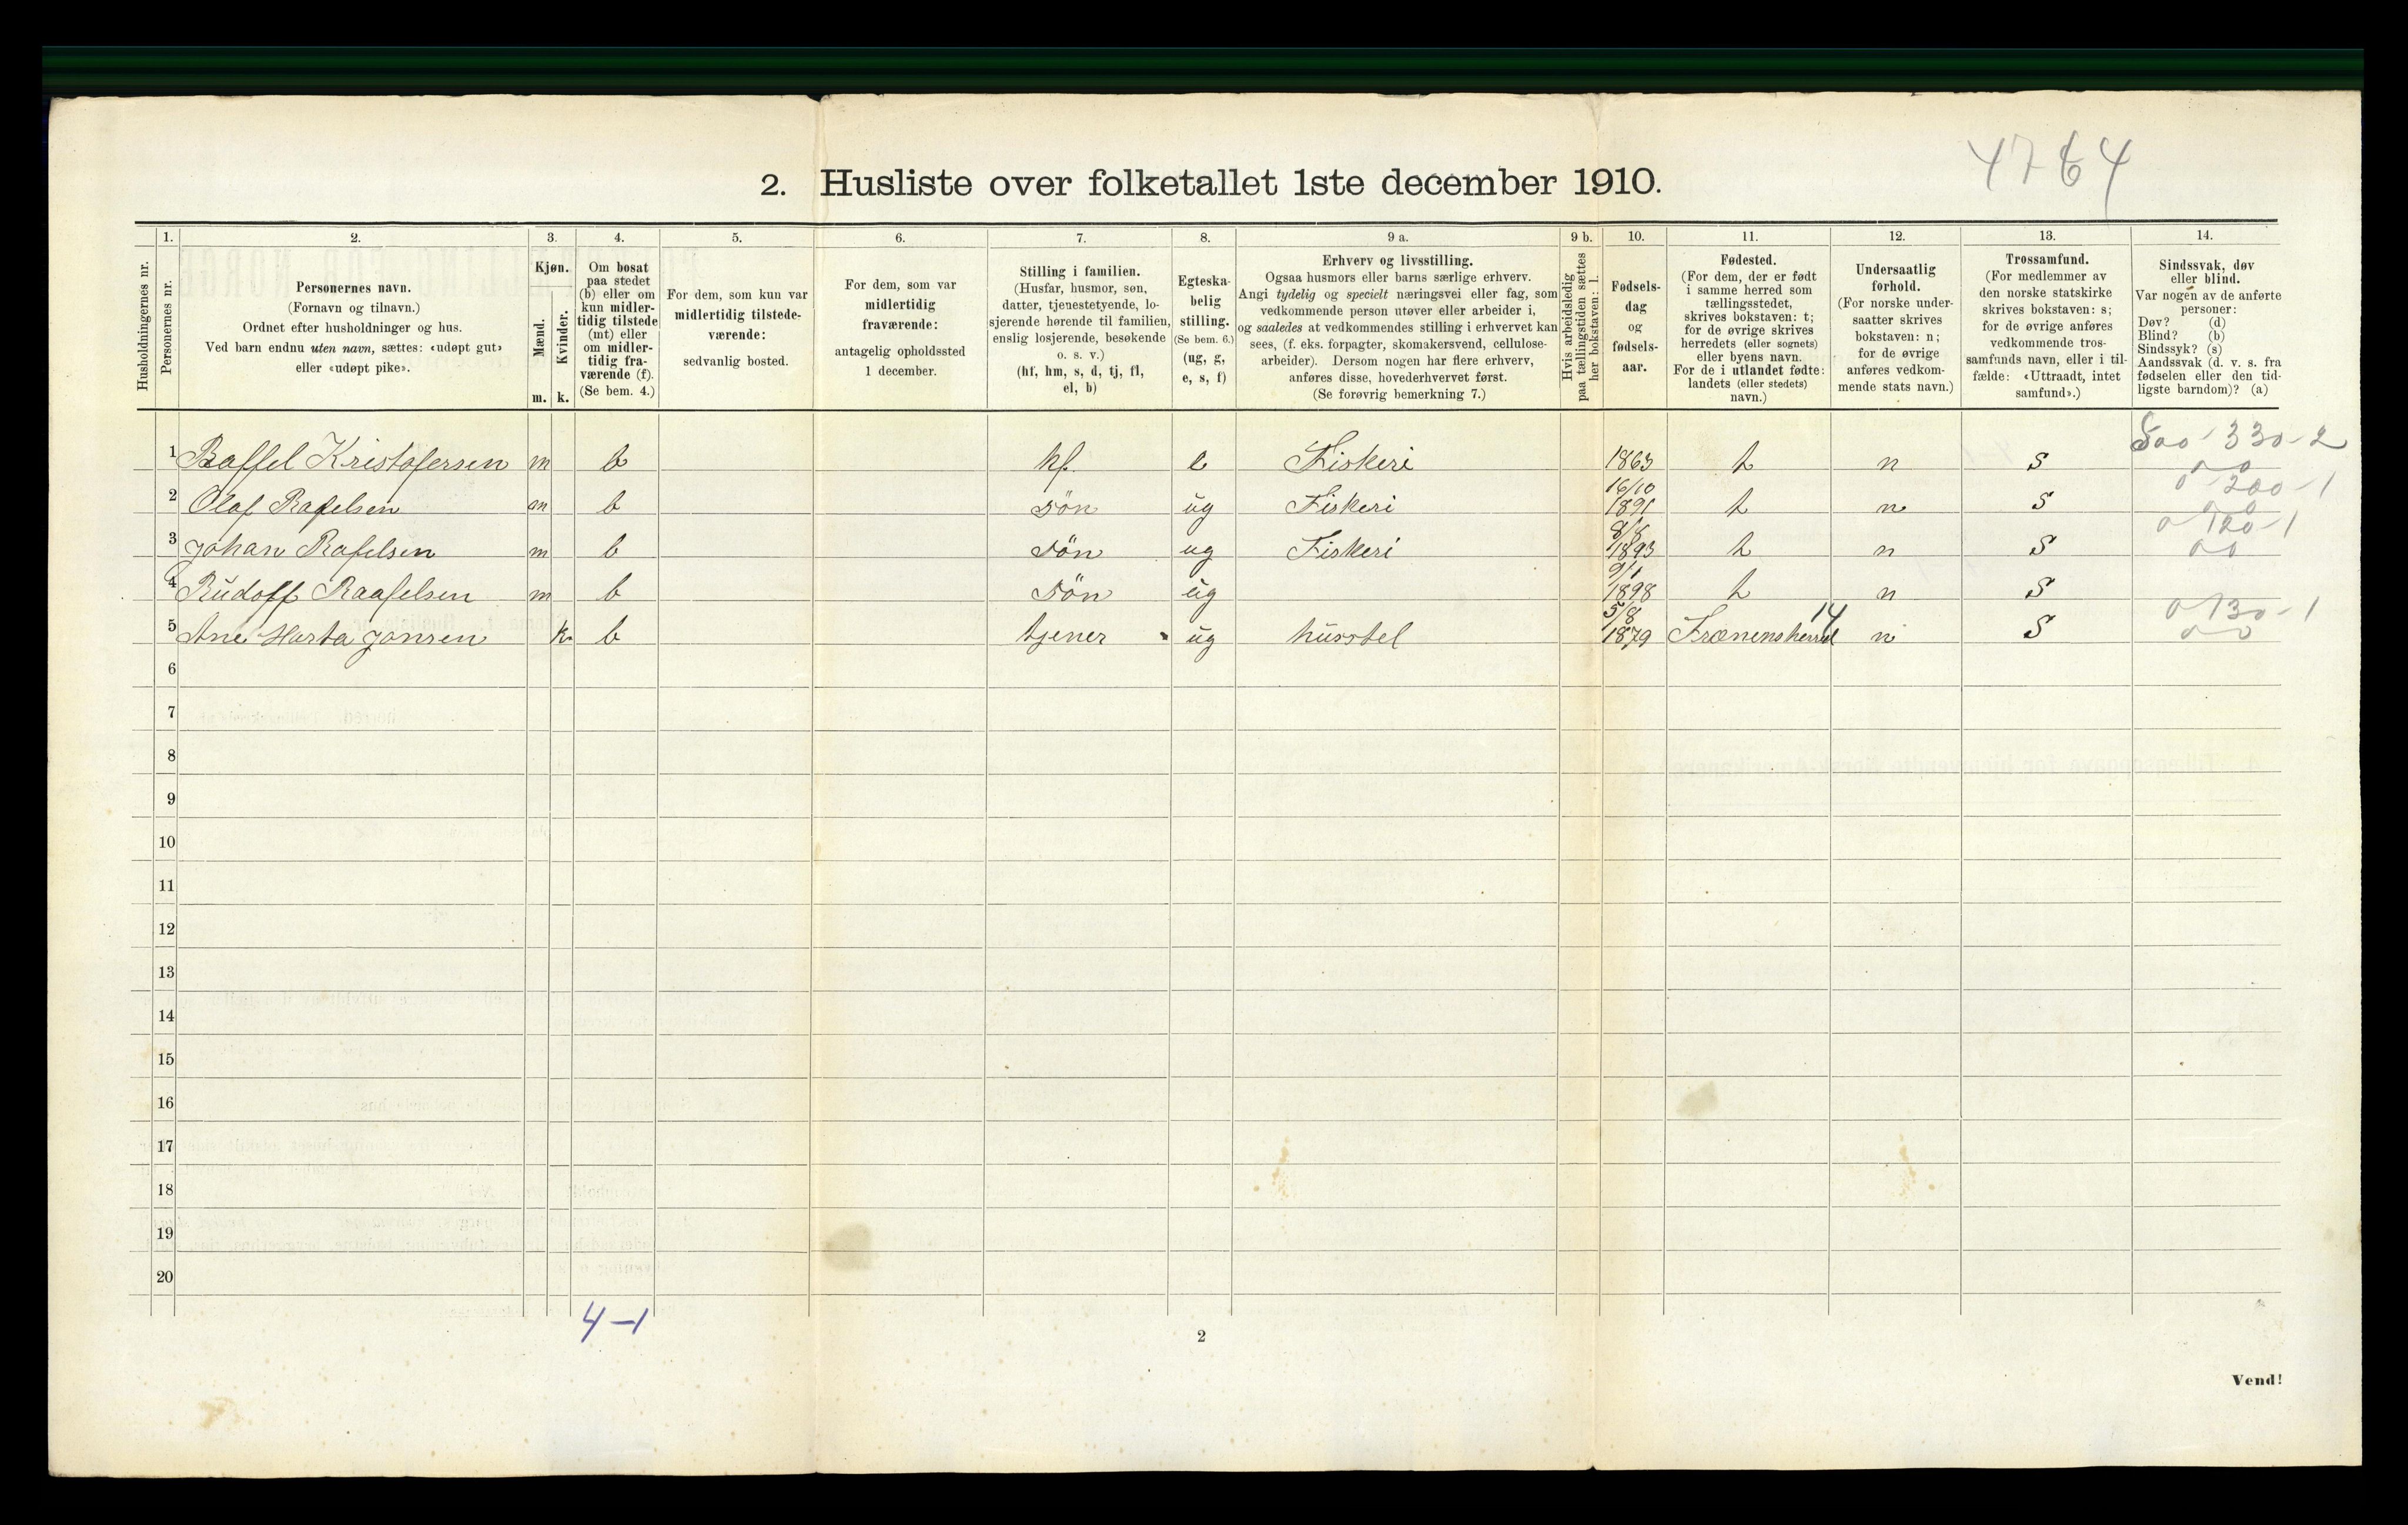 4764
2. Husliste over folketallet 1ste december 1910.
Husholdningernes nr.
1.
Personernes nr.
2.
Personernes navn.
(Fornavn og tilnavn.)
Ordnet efter husholdninger og hus.
Ved barn endnu uten navn, sættes: «udøpt gut»
eller «udøpt pike».
3.
Kjøn.
Mænd.
Kvinder.
m. k.
4.
Om bosat
paa stedet
(b) eller om
kun midler-
tidig tilstede
(mt) eller
om midler-
tidig fra-
værende (f).
(Se bem. 4.)
5.
For dem, som kun var
midlertidig tilstede-
værende:
sedvanlig bosted.
6.
For dem, som var
midlertidig
fraværende:
antagelig opholdssted
1 december.
7.
Stilling i familien.
(Husfar, husmor, søn,
datter, tjenestetyende, lo-
sjerende hørende til familien,
enslig losjerende, besøkende
o. s. v.)
(hf, hm, s, d, tj, fl,
el, b)
8.
Egteska-
belig
stilling.
(Se bem. 6.)
(ug, g,
e, s, f)
9 a.
Erhverv og livsstilling.
Ogsaa husmors eller barns særlige erhverv.
Angi tydelig og specielt næringsvei eller fag, som
vedkommende person utøver eller arbeider i,
og saaledes at vedkommendes stilling i erhvervet kan
sees, (f. eks. forpagter, skomakersvend, cellulose-
arbeider). Dersom nogen har flere erhverv,
anføres disse, hovederhvervet først.
(Se forøvrig bemerkning 7.)
9 b.
Hvis arbeidsledig
paa tællingstiden sættes
her bokstaven: l.
10.
Fødsels-
dag
og
fødsels-
aar.
11.
Fødested.
(For dem, der er født
i samme herred som
tællingsstedet,
skrives bokstaven: t;
for de øvrige skrives
herredets (eller sognets)
eller byens navn.
For de i utlandet fødte:
landets (eller stedets)
navn.)
12.
Undersaatlig
forhold.
(For norske under-
saatter skrives
bokstaven: n;
for de øvrige
anføres vedkom-
mende stats navn.)
13.
Trossamfund.
(For medlemmer av
den norske statskirke
skrives bokstaven: s;
for de øvrige anføres
vedkommende tros-
samfunds navn, eller i til-
fælde: «Uttraadt, intet
samfund».)
14.
Sindssvak, døv
eller blind.
Var nogen av de anførte
personer:
Døv? (d)
Blind? (b)
Sindssyk? (s)
Aandssvak (d. v. s. fra
fødselen eller den tid-
ligste barndom)? (a)
500-330-2
1 Raffel Kristofersen m b hf. e Fiskeri 1863 t n S 0 0
16/10 0-200-1
2 Olaf Rafelsen m b søn ug Fiskeri 1891 t n S 0 0
8/8 0-120-1
3 Johan Rafelsen m b søn ug Fiskeri 1893 t n S 0 0
9/1
4 Rudoff Raafelsen m b søn ug 1898 t n S
5/8 14 0-130-1
5 Ane Marta Jonsen k b tjener ug husstel 1879 Frænensherred n S 0 0
6
7
8
9
10
11
12
13
14
15
16
17
18
19
20
4-1
2
Vend!